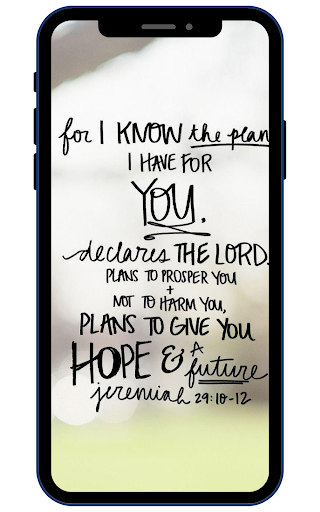 for I KNOW the plan
I HAVE FOR
YOU.
declares THE LORD.
PLANS TO PROSPER YOU
+
NOT TO HARM YOU,
PLANS TO GIVE YOU
HOPE & A future
jeremiah 29:10-12